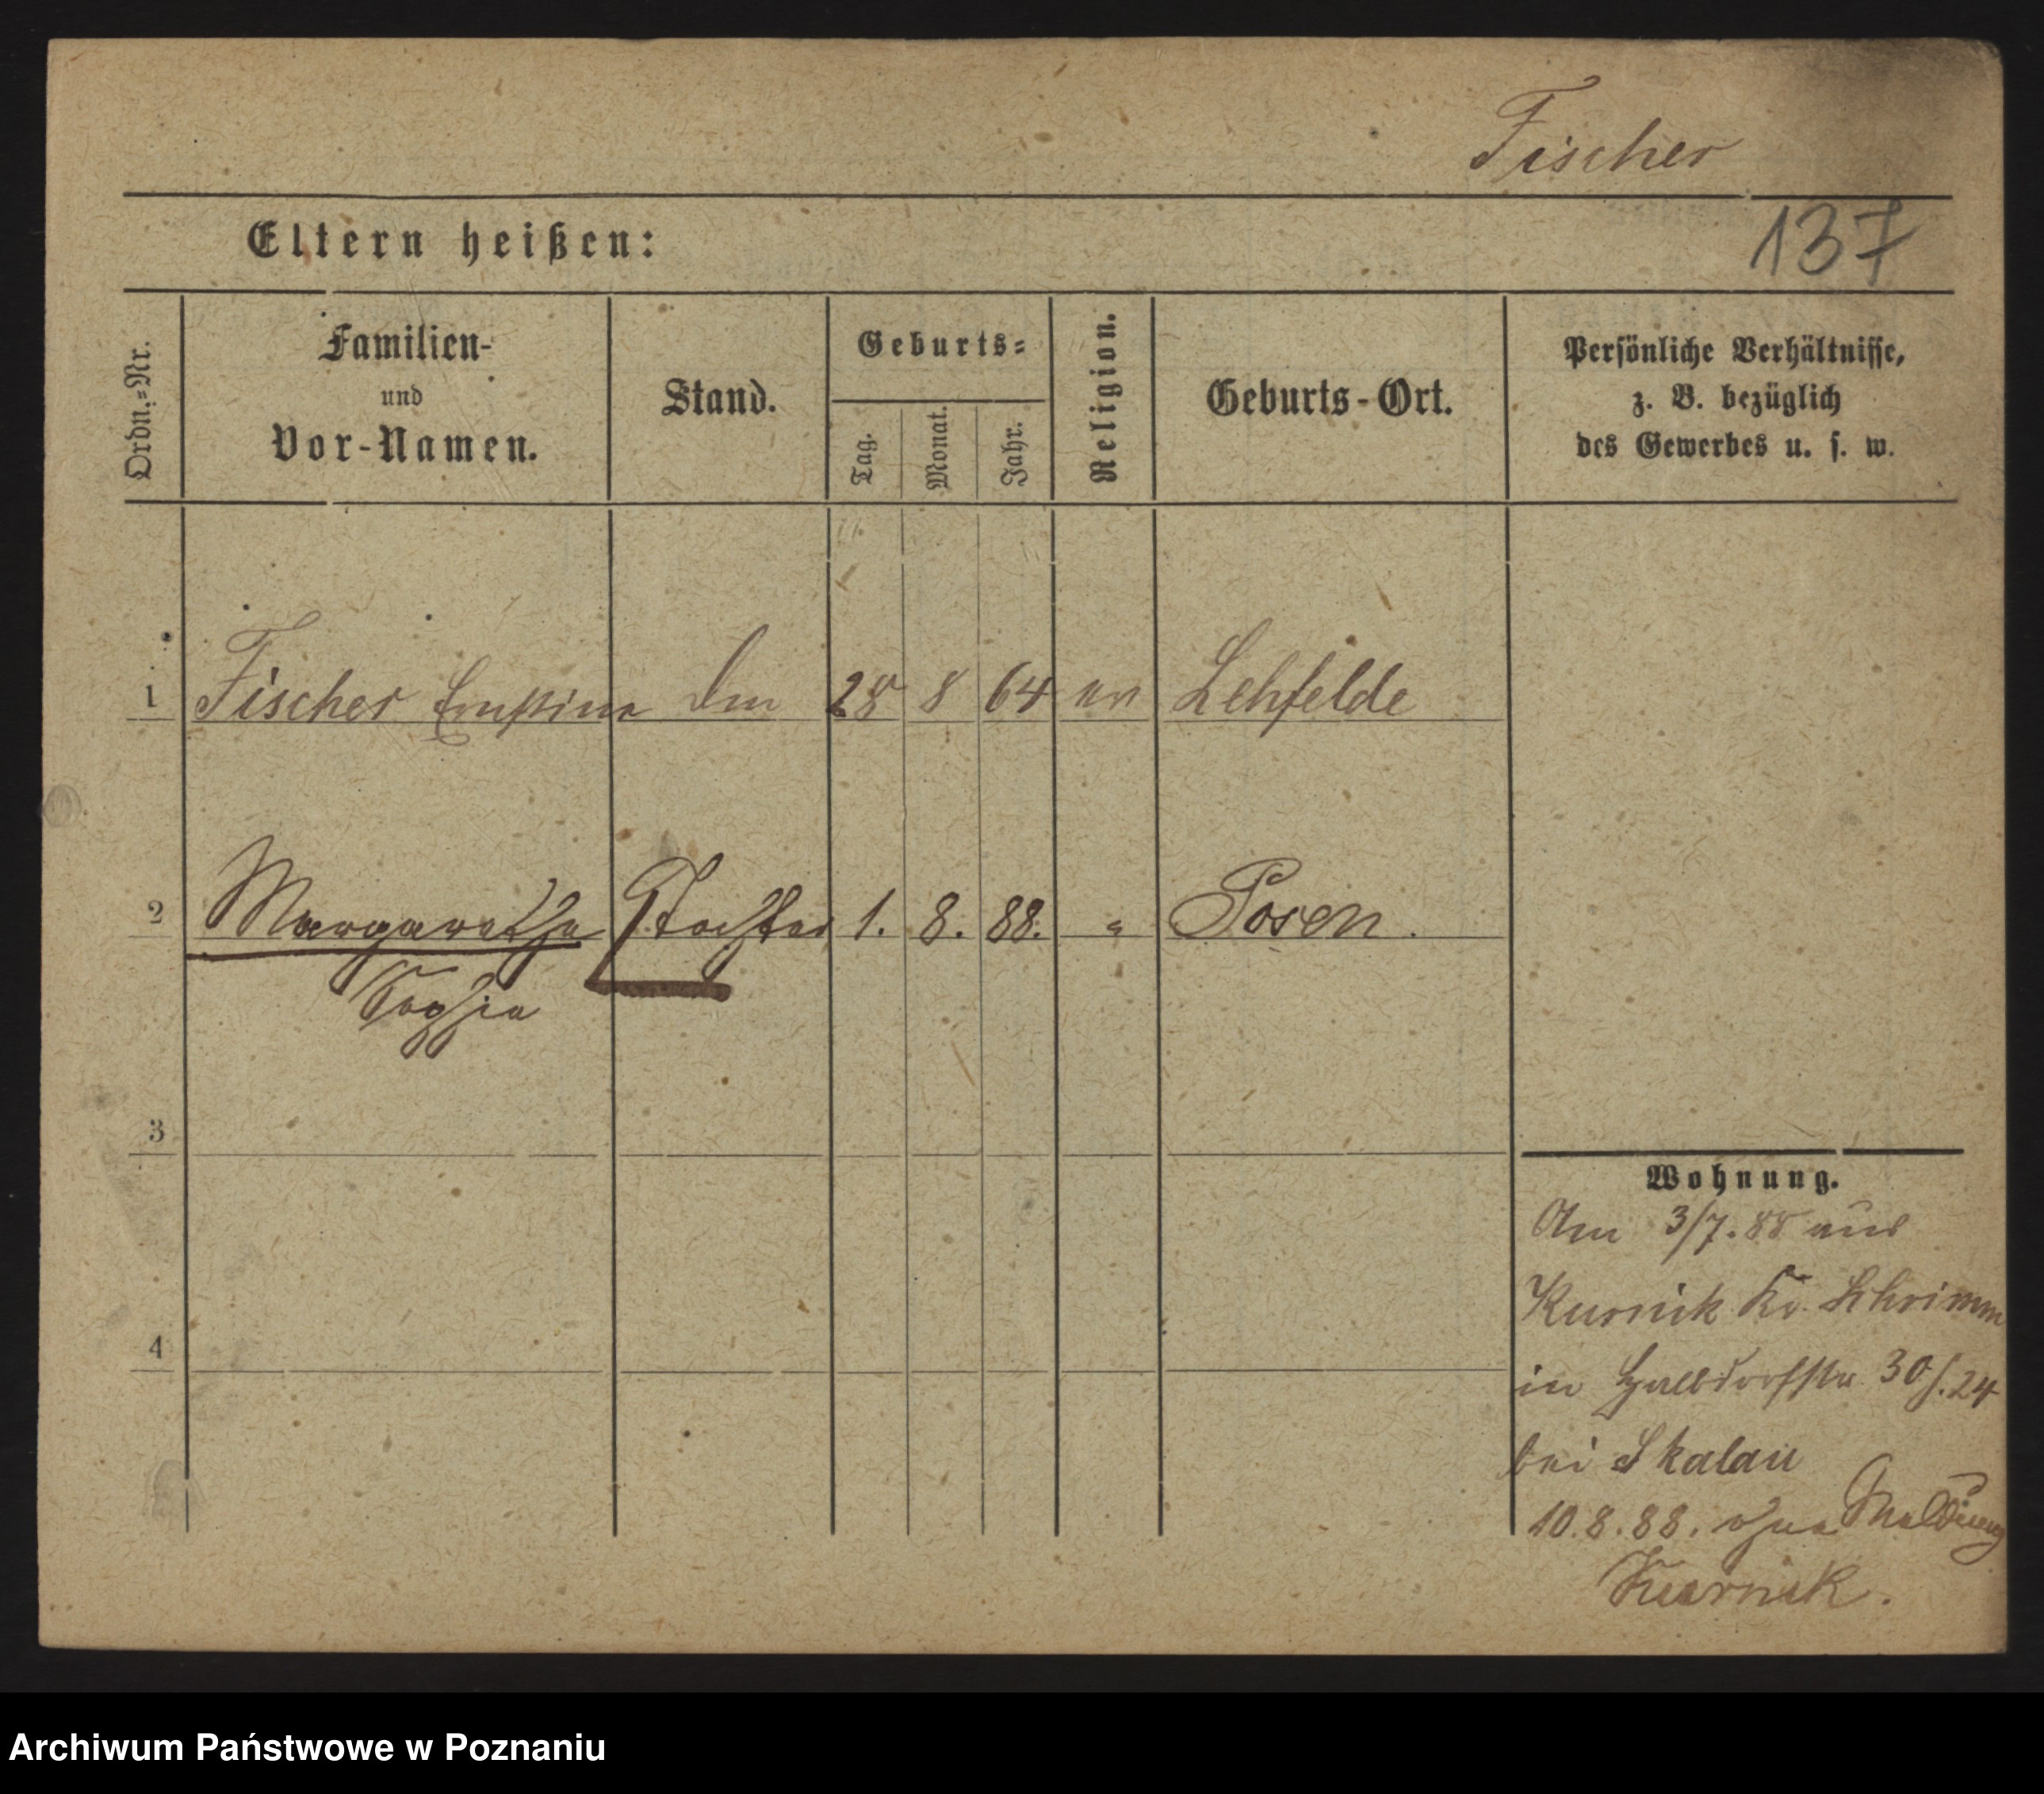 Fischer
137
Eltern heißen:
Ordn.=Nr.
Familien-
und
Vor-Namen.
Stand.
Geburts=
Tag.
Monat.
Jahr.
Religion.
Geburts-Ort.
Persönliche Verhältnisse,
z. B. bezüglich
des Gewerbes u. s. w.
1 Fischer 28 8 64 ev Lehfelde
2 Margarethe Tochter 1. 8. 88. " Posen.
Sophia
3
4
Wohnung.
Am 3/7. 88 aus
Kurnik Kr. Schrimm
in Halbdorfstr. 30/.24
bei Skalau
10.8.88. ohne Meldung
Kurnik.
Archiwum Państwowe w Poznaniu